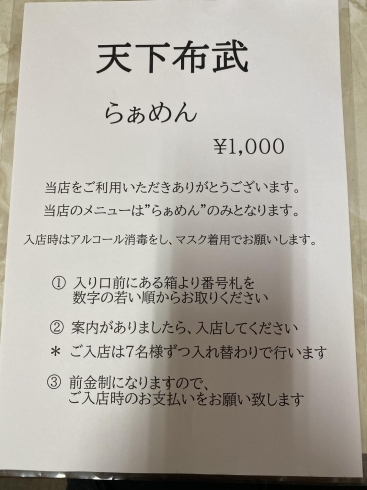 天下布武
らぁめん
¥1,000
当店をご利用いただきありがとうございます。
当店のメニューは”らぁめん”のみとなります。
入店時はアルコール消毒をし、マスク着用でお願いします。
① 入り口前にある箱より番号札を
数字の若い順からお取りください
② 案内がありましたら、入店してください
* ご入店は7名様ずつ入れ替わりで行います
③ 前金制になりますので、
ご入店時のお支払いをお願い致します